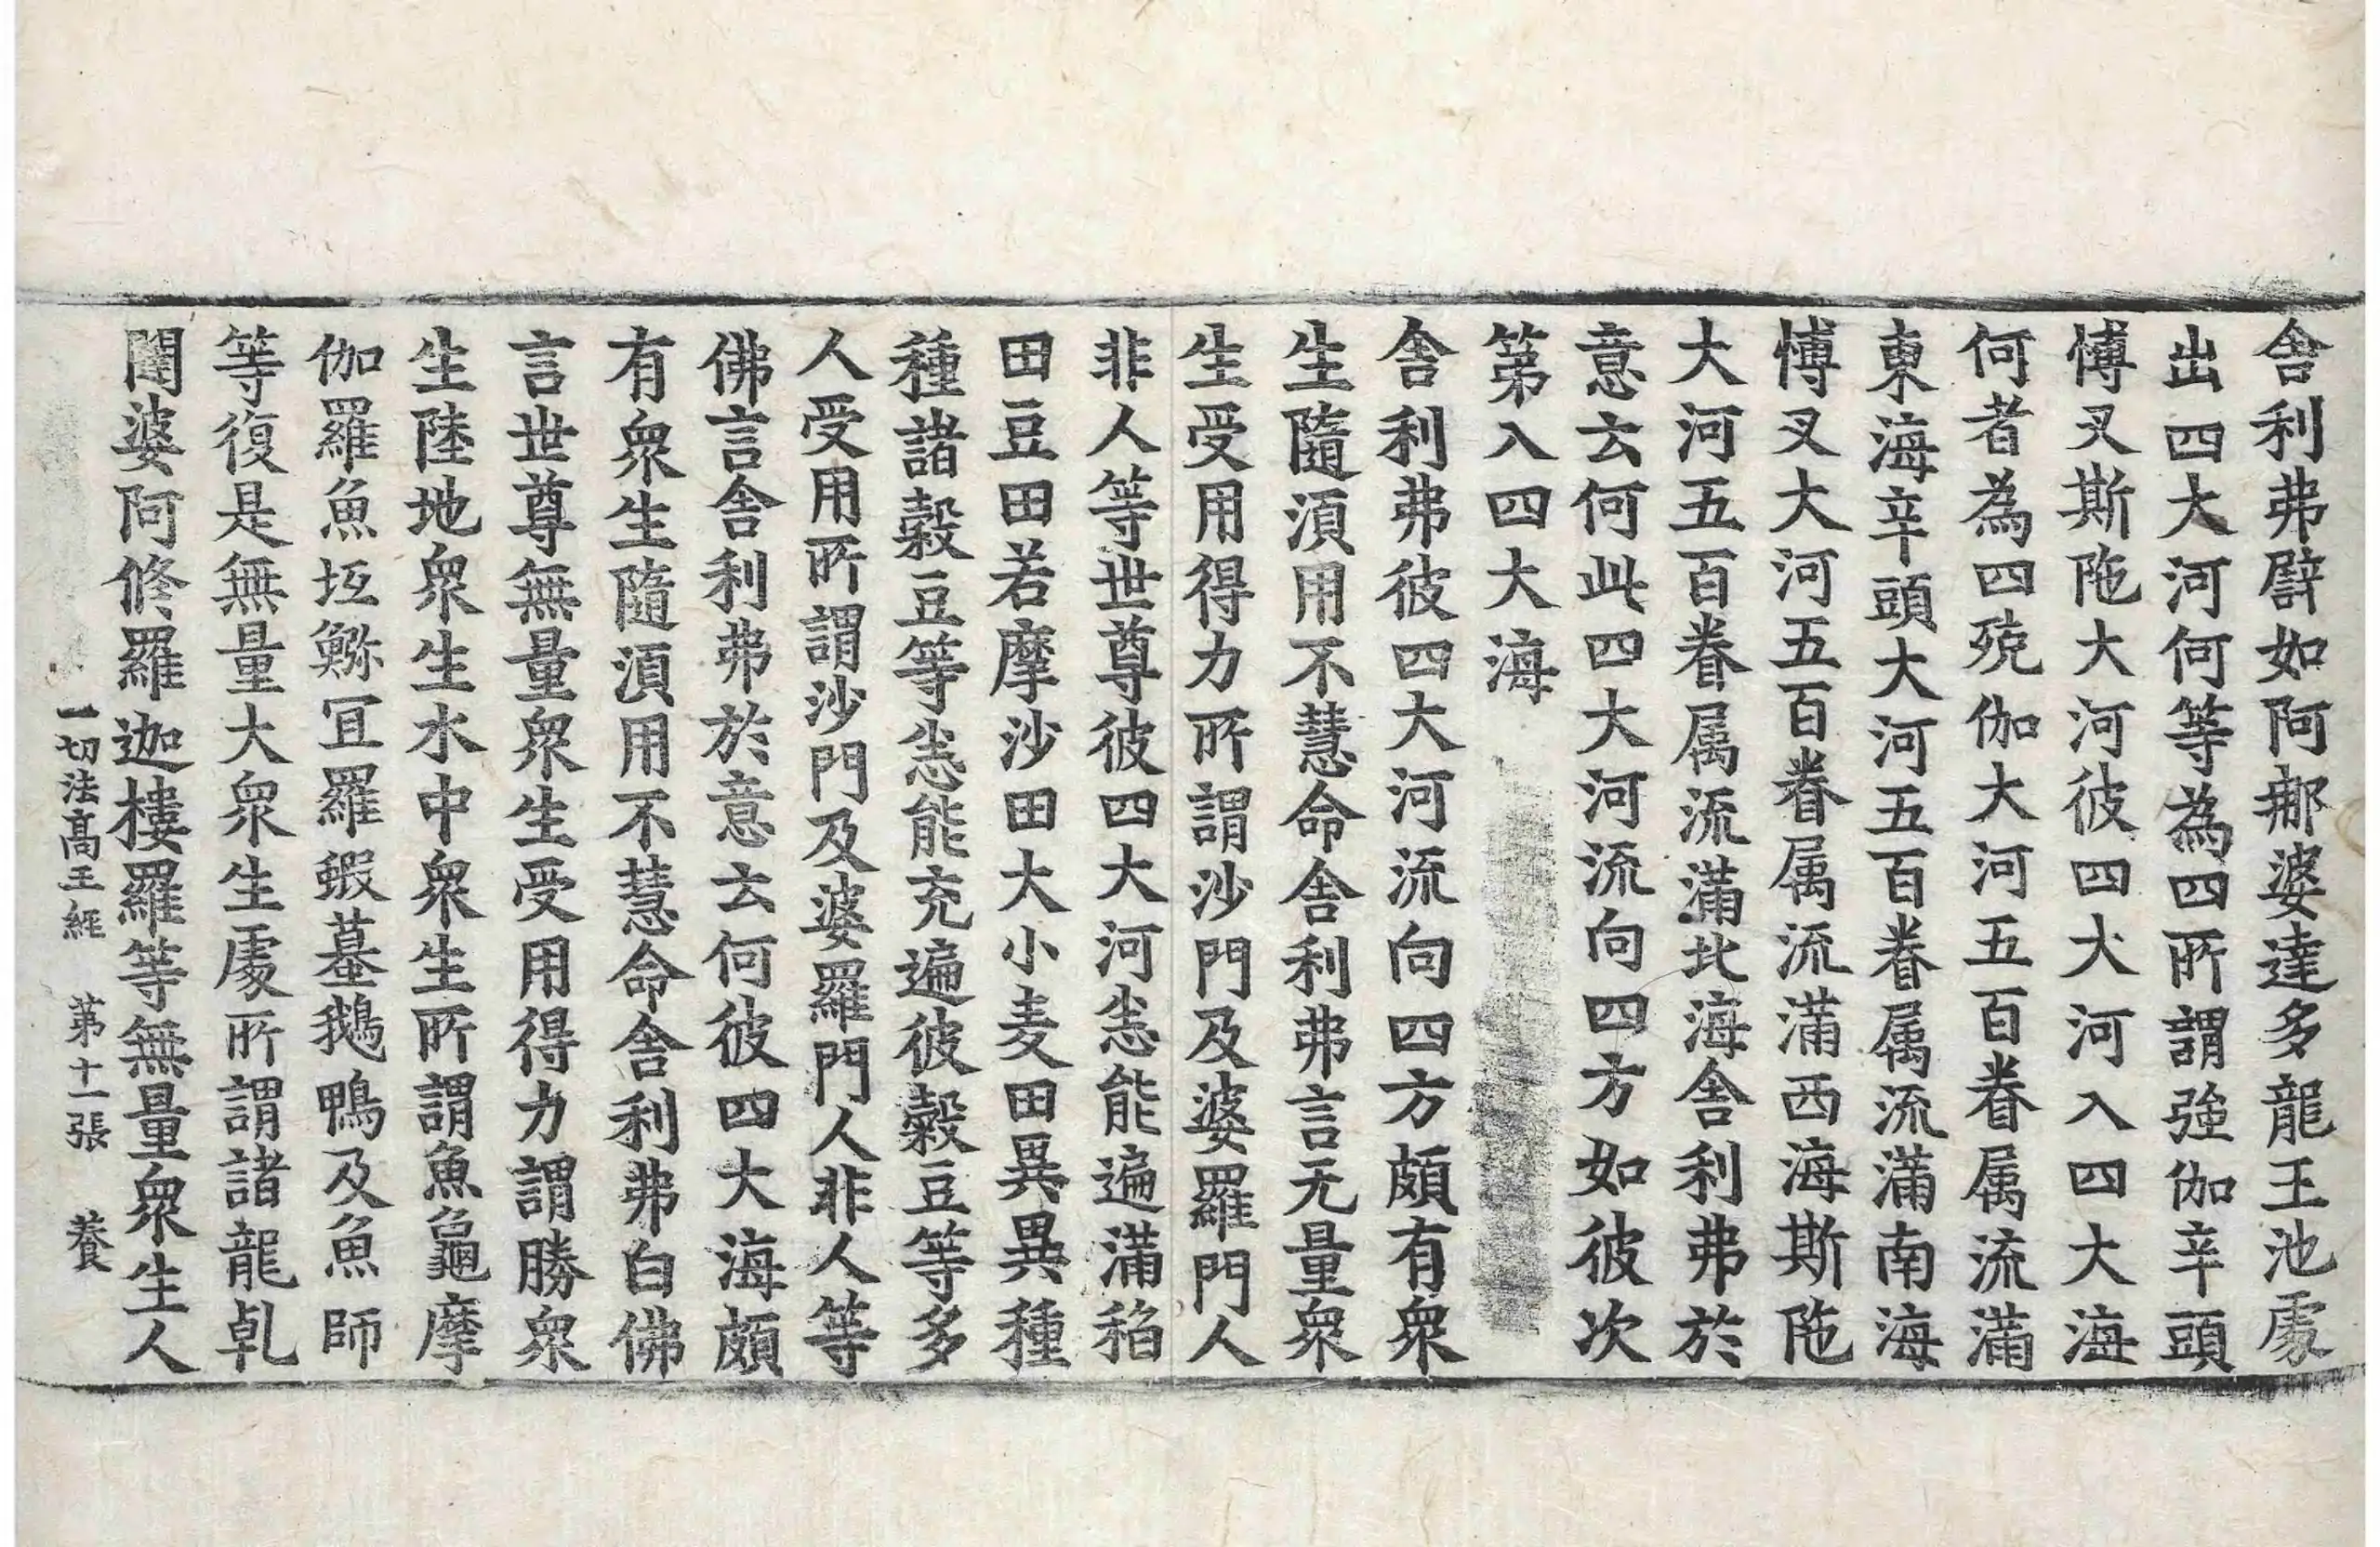 舎利弗譬如阿那婆達多龍王池𠁅
出四大河何等為四所謂強伽辛頭
愽叉斯陁大河彼四大河入四大海
何者為四殑伽大河五百眷属流滿
東海辛頭大河五百眷属流滿南海
愽叉大河五百眷属流滿西海斯陁
大河五百眷属流滿北海舎利弗於
意云何此四大河流向四方如彼次
第入四大海
舎利弗彼四大河流向四方頗有衆
生隨湏用不慧命舎利弗言无量衆
生受用得力所謂沙門及婆羅門人
非人等世尊彼四大河悉能遍滿稻
田豆田若摩沙田大小麦田異異種
種諸糓豆等悉能充遍彼糓豆等多
人受用所謂沙門及婆羅門人非人等
佛言舎利弗於意云何彼四大海頗
有衆生隨湏用不慧命舎利弗白佛
言世尊無量衆生受用得力謂勝衆
生陸地衆生水中衆生所謂魚龜摩
伽羅魚坘鰴冝羅蝦蟇鵝鴨及魚師
等復是無量大衆生𠁅所謂諸龍乹
闥婆阿修羅迦樓羅等無量衆生人
一切法髙王經 第十一張 養